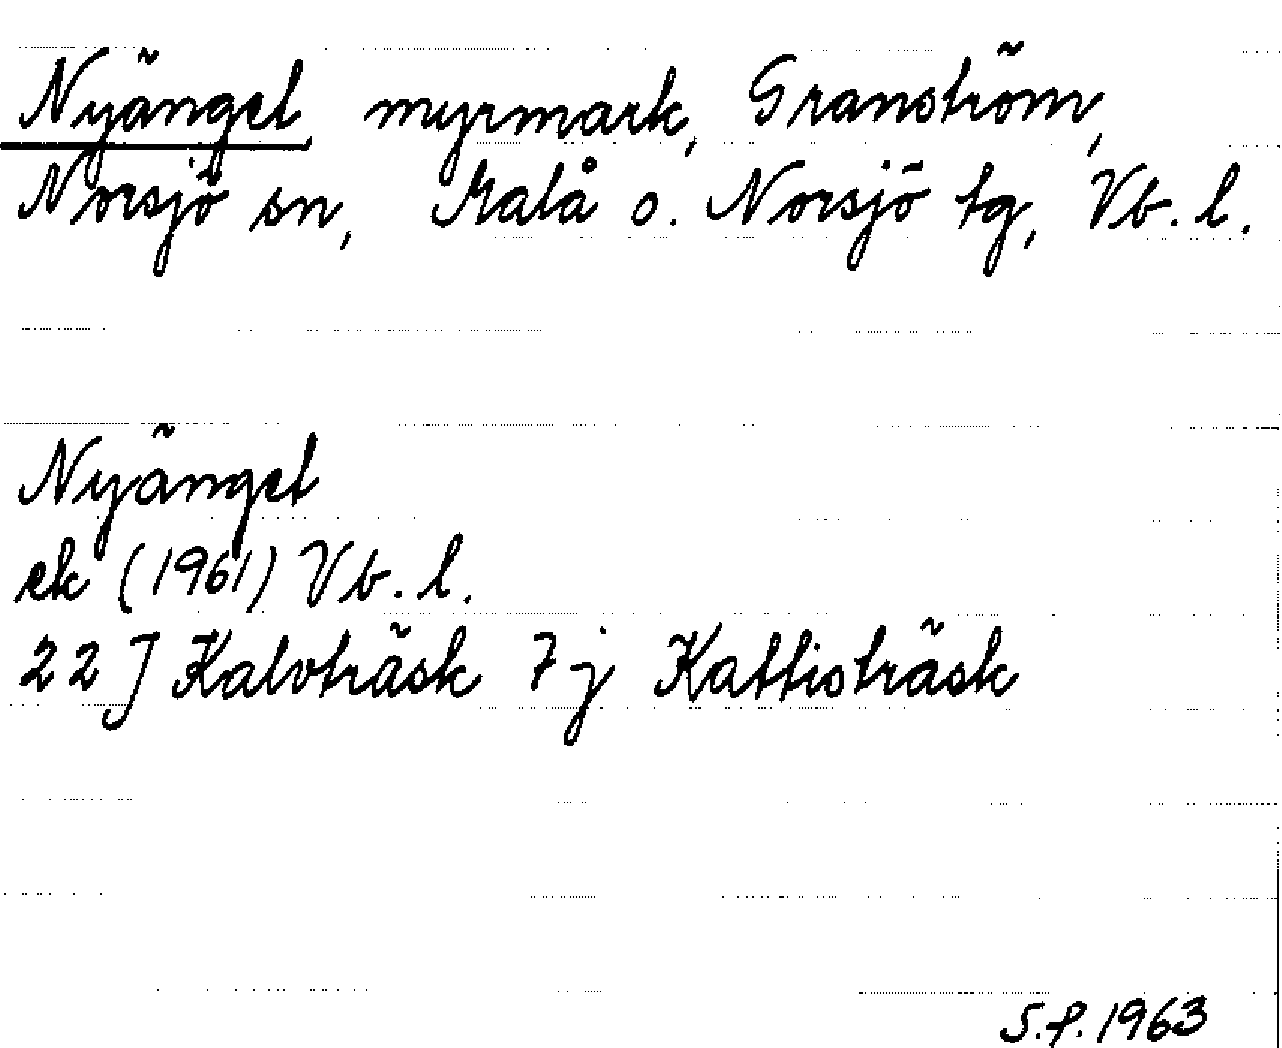 Nyängel, myrmark, Granström,
Norsjö sn, Malå o. Norsjö tg, Vb. l.
Nyängel
ek (1961) Vb. l.
22 J Kalvträsk 7 j Kattisträsk
S.P. 1963